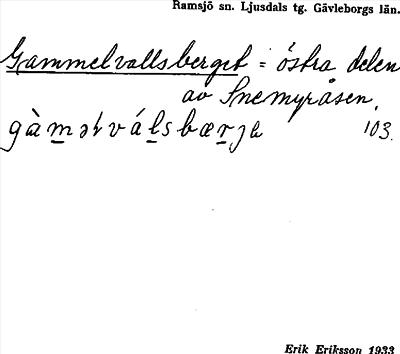 Ramsjö sn. Ljusdals tg. Gävleborgs län.
Gammelvallsberget = östra delen
av Snemyråsen.
103.
Erik Eriksson 1933